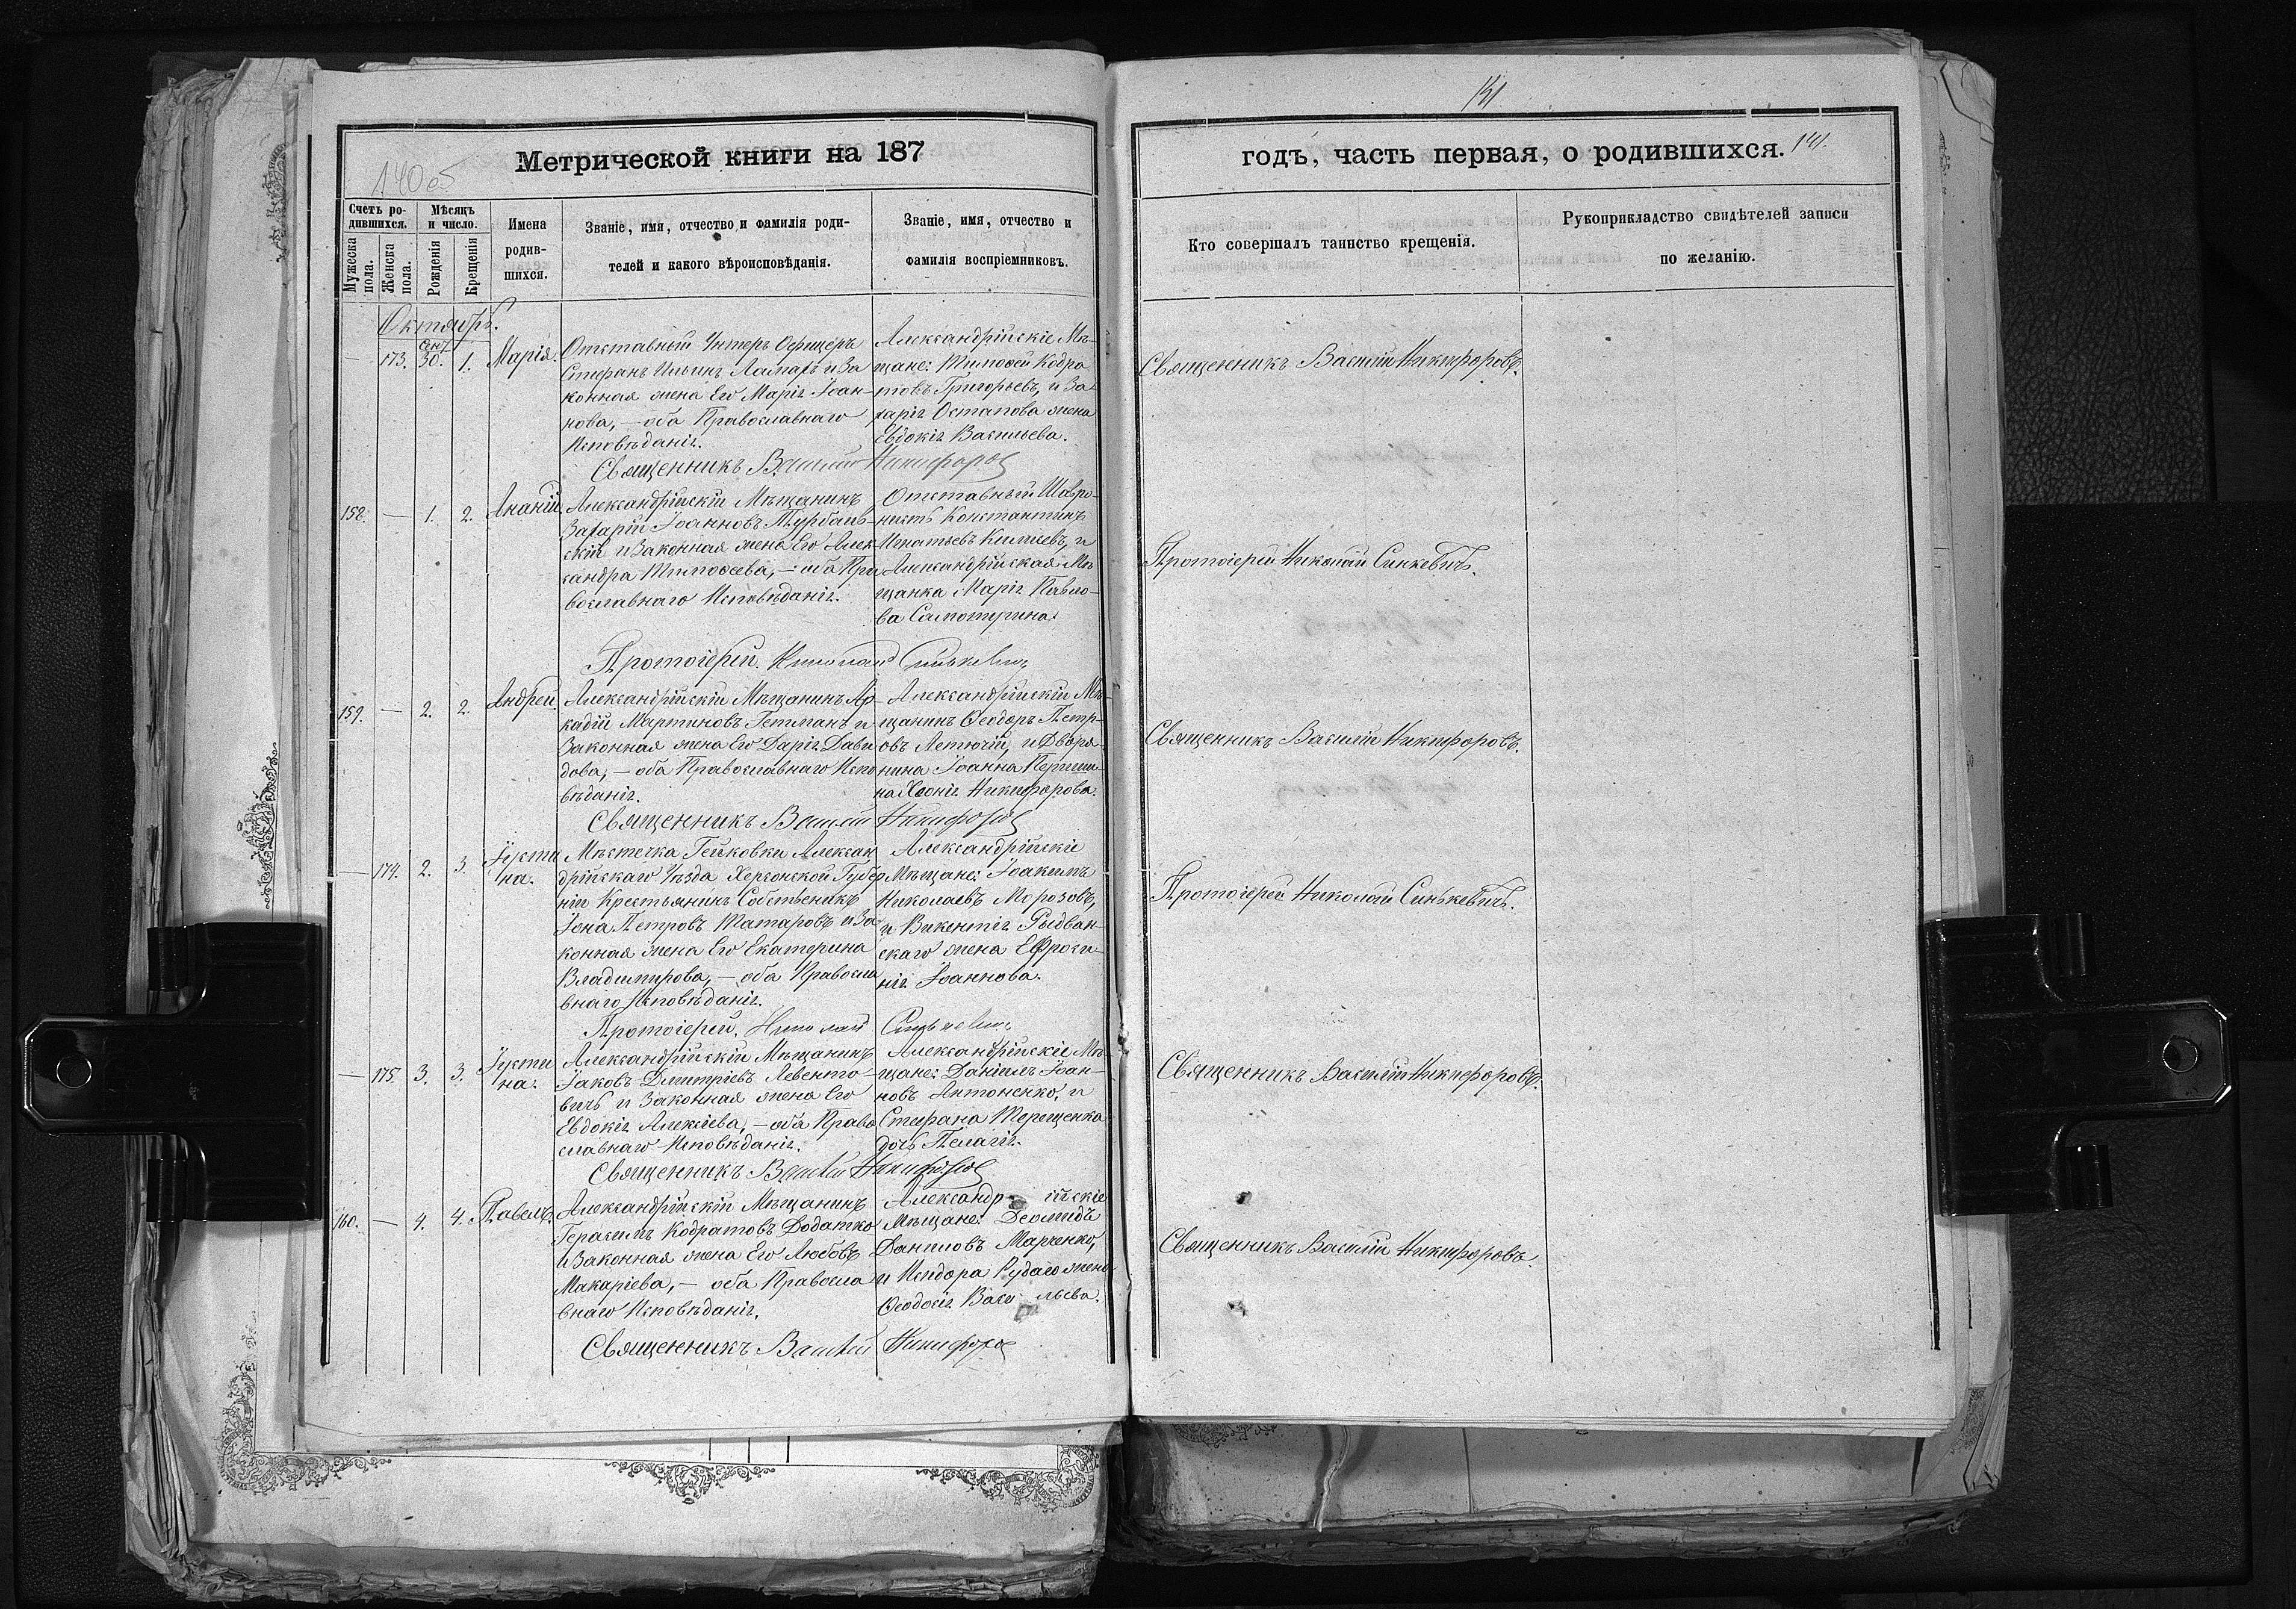 140 об
Метрической книги на 187
Счетъ ро-
дившихся.
Мужеска пола.
Женска пола.
Мѣсяцъ
и число.
Рожденія
Крещенія
Имена
родив-
шихся.
Званіе, имя, отчество и фамилія роди-
телей и какого вѣроисповѣданія.
Званіе, имя, отчество и
фамилія воспріемниковъ.
Октябрь.
— 173. Сент. 30. 1. Марія.
Отставный Унтеръ Офицеръ
Стефанъ Ильинъ Ламахъ и За
конная жена Его Марія Іоан-
нова, — оба Православнаго
Исповѣданія.
Александрійскіе Мѣ-
щане: Тимоѳей Кодра
товъ Григорьевъ, и За
харія Остапова жена
Евдокія Васильева.
Священникъ Василій Никифоровъ
158. — 1. 2. Ананій.
Александрійскій Мѣщанинъ
Захарій Іоанновъ Турбаев-
скій и Законная жена Его Алек
сандра Тимоѳеева, — оба Пра
вославнаго Исповѣданія.
Отставный
Константинъ
Игнатьевъ и
Александрійская Мѣ
щанка Марія Павло-
ва
Протоіерей Николай Синькевичъ
159. — 2. 2. Андрей.
Александрійскій Мѣщанинъ Ар
кадій Мартиновъ Гетманъ и
Законная жена Его Дарія Дави
дова, — оба Православнаго Испо
вѣданія.
Александрійскій Мѣ-
щанинъ Ѳеодоръ Петр-
овъ Летючій, и Дворя-
нина Іоанна
Никифорова.
Священникъ Василій Никифоровъ
— 174. 2. 3. Іусти
на.
Мѣстечка Гейковки Алексан
дрійскаго Уѣзда Херсонской Губер
ніи Крестьянинъ Собственикъ
Іона Петровъ Татаровъ и За
конная жена Его Екатерина
Владимирова, — оба Правосла
внаго Исповѣданія.
Александрійскіе
Мѣщане: Іоакимъ
Николаевъ Морозовъ,
и Викентія Рыдван-
скаго жена Ефроси-
нія Іоаннова.
Протоіерей Николай Синькевичъ
— 175. 3. 3. Іусти
на.
Александрійскій Мѣщанинъ
Іаковъ Дмитріевъ Левенто-
вичъ и Законная жена Его
Евдокія Алексіева, — оба Право
славнаго Исповѣданія.
Александрійскіе Мѣ-
щане: Даніилъ Іоан-
новъ Антоненко, и
Стефана Терещенка
дочь Пелагія.
Священникъ Василій Никифоровъ
160. — 4. 4. Павелъ.
Александрійскій Мѣщанинъ
Герасимъ Кодратовъ Додатко
и Законная жена Его Любовь
Макаріева, — оба Правосла
внаго Исповѣданія.
Александрійскіе
Мѣщане: Деомидъ
Даниловъ Марченко,
и Исидора Рудаго жена
Ѳеодосія Васильева.
Священникъ Василій Никифоровъ
141
годъ, часть первая, о родившихся. 141.
Кто совершалъ таинство крещенія.
Рукоприкладство свидѣтелей записи
по желанію.
Священникъ Василій Никифоровъ.
Протоіерей Николай Синкевичъ.
Священникъ Василій Никифоровъ.
Протоіерей Николай Синькевичъ.
Священникъ Василій Никифоровъ.
Священникъ Василій Никифоровъ.